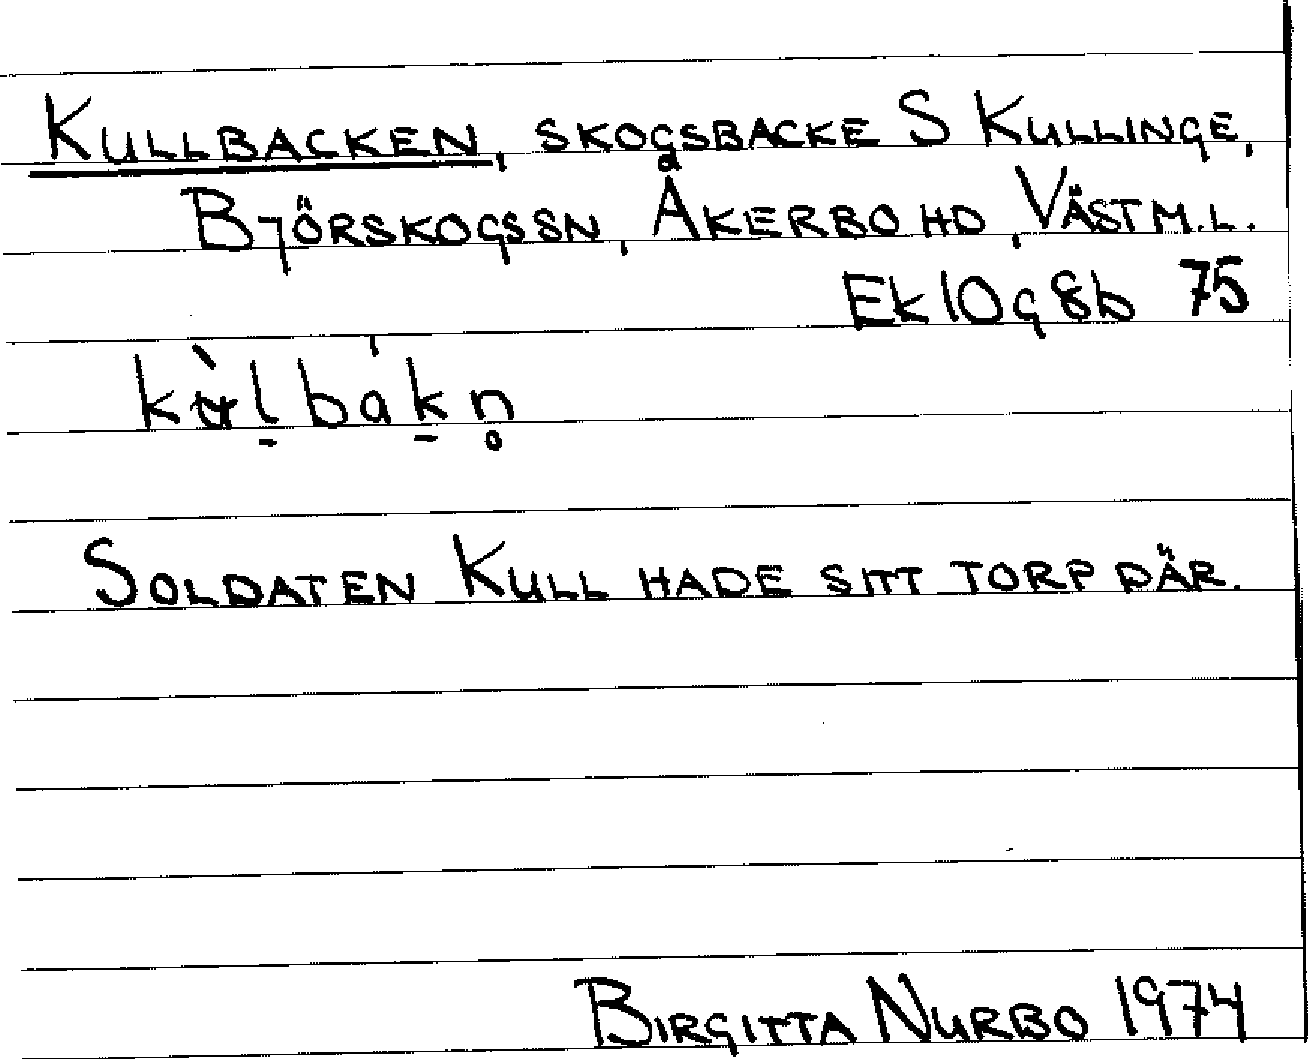 KULLBACKEN, SKOGSBACKE S KULLINGE,
BJÖRSKOGS SN, ÅKERBO HD, VÄSTM.L.
EK 10g 8b 75
kʉ̀l̠bák̠n̥
SOLDATEN KULL HADE SITT TORP DÄR.
BIRGITTA NURBO 1974